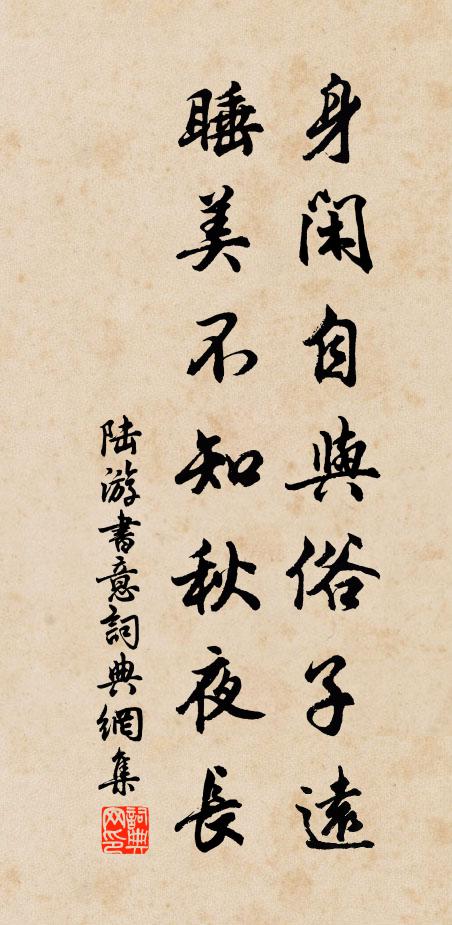 身閑自與俗子遠
睡美不知秋夜長
陸游書意詞典網集
詞典網印